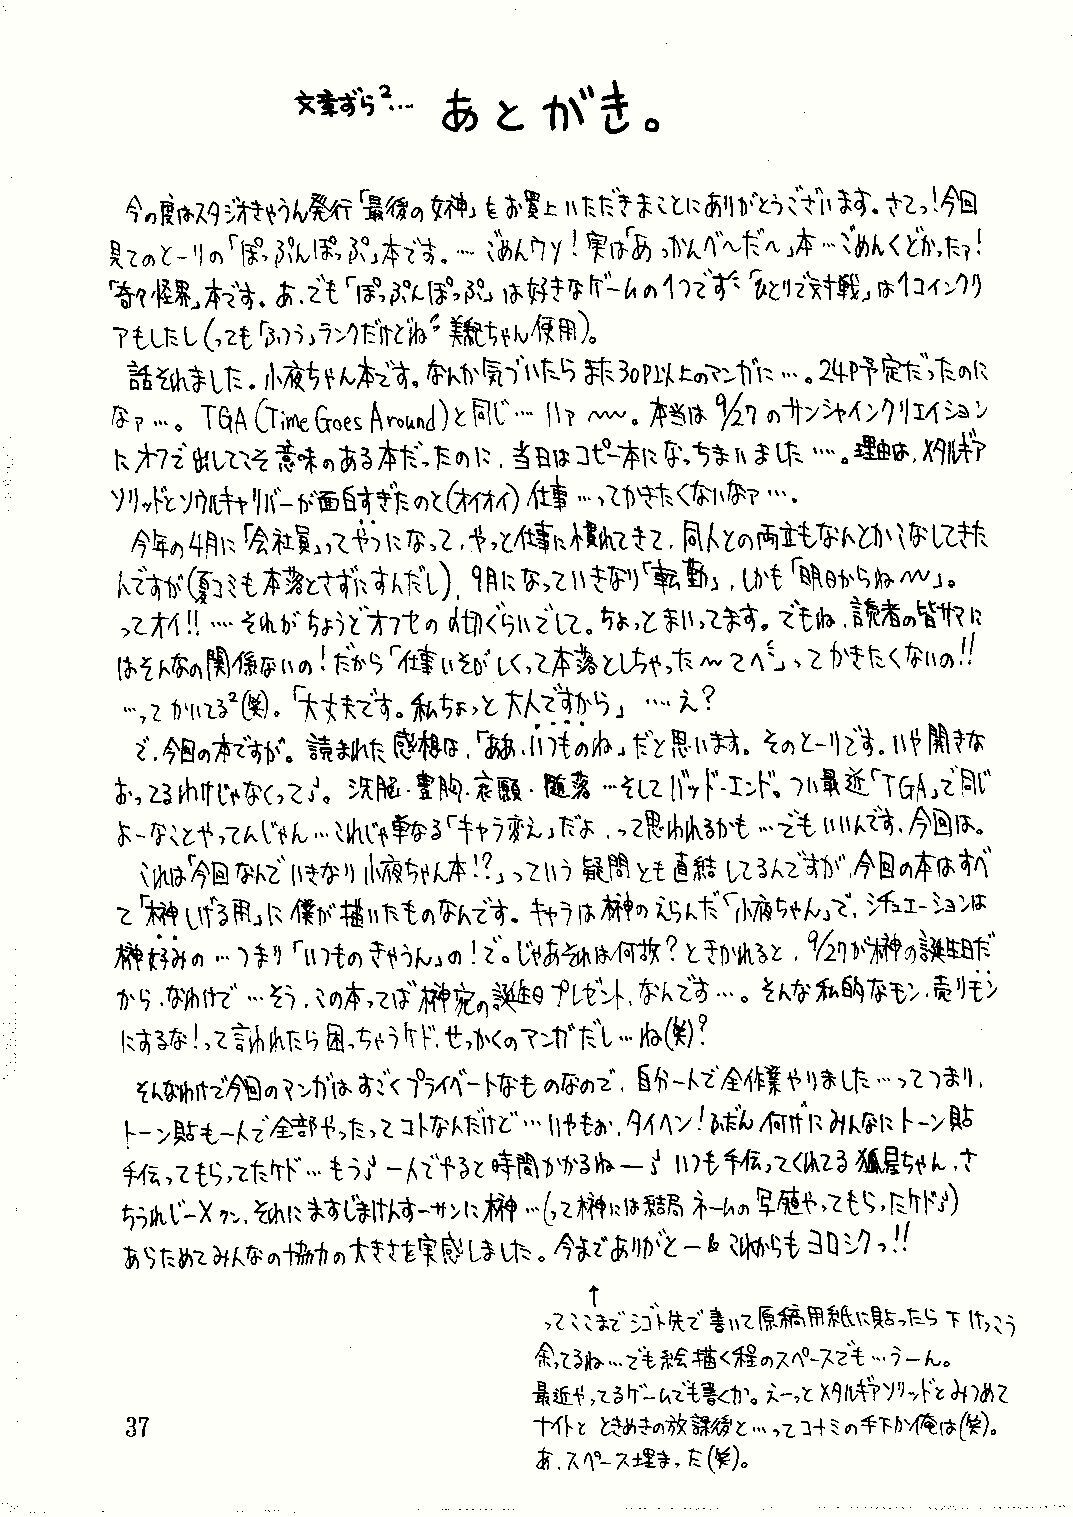 文章ずら²… あとがき。
今の度はスタジオきゃうん発行「最後の女神」をお買上いただきまことにありがとうございます。さてっ!今回
見てのとーりの「ぽっぷんぽっぷ」本です。…ごめんウソ!実は「あっかんべ〜だ〜」本…ごめんくどかったァ!
「奇々怪界」本です。あ、でも「ぽっぷんぽっぷ」は好きなゲームの1つです「ひとりで対戦」は1コインクリ
アもしたし(っても「ふつう」ランクだけどね 美紀ちゃん使用)。
話それました。小夜ちゃん本です。なんか気づいたらまた30P以上のマンガに…。24P予定だったのに
なァ…。TGA(Time Goes Around)と同じ…ハァ〜〜。本当は9/27のサンシャインクリエイション
にオフで出してこそ意味のある本だったのに、当日はコピー本になっちまいました…。理由は、メタルギア
ソリッドとソウルキャリバーが面白すぎたのと(オイオイ)仕事…ってかきたくないなァ…。
今年の4月に「会社員」ってやつになって、やっと仕事に慣れてきて、同人との両立もなんとかこなしてきた
んですが(夏コミも本落とさずにすんだし)、9月になっていきなり「転勤」、しかも「明日からね〜」。
ってオイ!!…それがちょうどオフセの〆切ぐらいでして。ちょっとまいってます。でもね、読者の皆サマに
はそんなの関係ないの!だから「仕事いそがしくって本落としちゃった〜てへ」ってかきたくないの!!
…ってかいてる²(笑)。「大丈夫です。私ちょっと大人ですから」…え?
で、今回の本ですが。読まれた感想は、「ああ、いつものね」だと思います。そのとーりです。いや開きな
おってるわけじゃなくって♪。洗脳・豊胸・哀願・堕落…そしてバッド・エンド。つい最近「TGA」で同じ
よーなことやってんじゃん…これじゃ単なる「キャラ変え」だよ、って思われるかも…でもいいんです、今回は。
これは「今回なんでいきなり小夜ちゃん本!?」っていう疑問とも直結してるんですが、今回の本はすべ
て「榊しげる用」に僕が描いたものなんです。キャラは榊のえらんだ「小夜ちゃん」で、シチュエーションは
榊好みの…つまり「いつものきゃうん」の!で。じゃあそれは何故?ときかれると、9/27が榊の誕生日だ
から、なわけで…そう、この本ってば榊宛の誕生日プレゼント、なんです…。そんな私的なモン、売リモン
にするな!って言われたら困っちゃうケド、せっかくのマンガだし…ね(笑)?
そんなわけで今回のマンガはすごくプライベートなものなので、自分一人で全作業やりました…ってつまり、
トーン貼も一人で全部やったってコトなんだけど…いやもぉ、タイヘン!ふだん何げにみんなにトーン貼
手伝ってもらってたケド…もう♪一人でやると時間かかるねー♪いつも手伝ってくれてる狐星ちゃん、さ
ちうれじーXクン、それにますじまけんすーサンに榊…(って榊には結局ネームの写植やってもらったケド♪)
あらためてみんなの協力の大きさを実感しました。今までありがとー&これからもヨロシクっ!!
↑
ってここまでシゴト先で書いて原稿用紙に貼ったら下けっこう
余ってるね…でも絵描く程のスペースでも…うーん。
最近やってるゲームでも書くか。えーっとメタルギアソリッドとみつめて
ナイトとときめきの放課後と…ってコナミの手下か俺は(笑)。
あ、スペース埋まった(笑)。
37